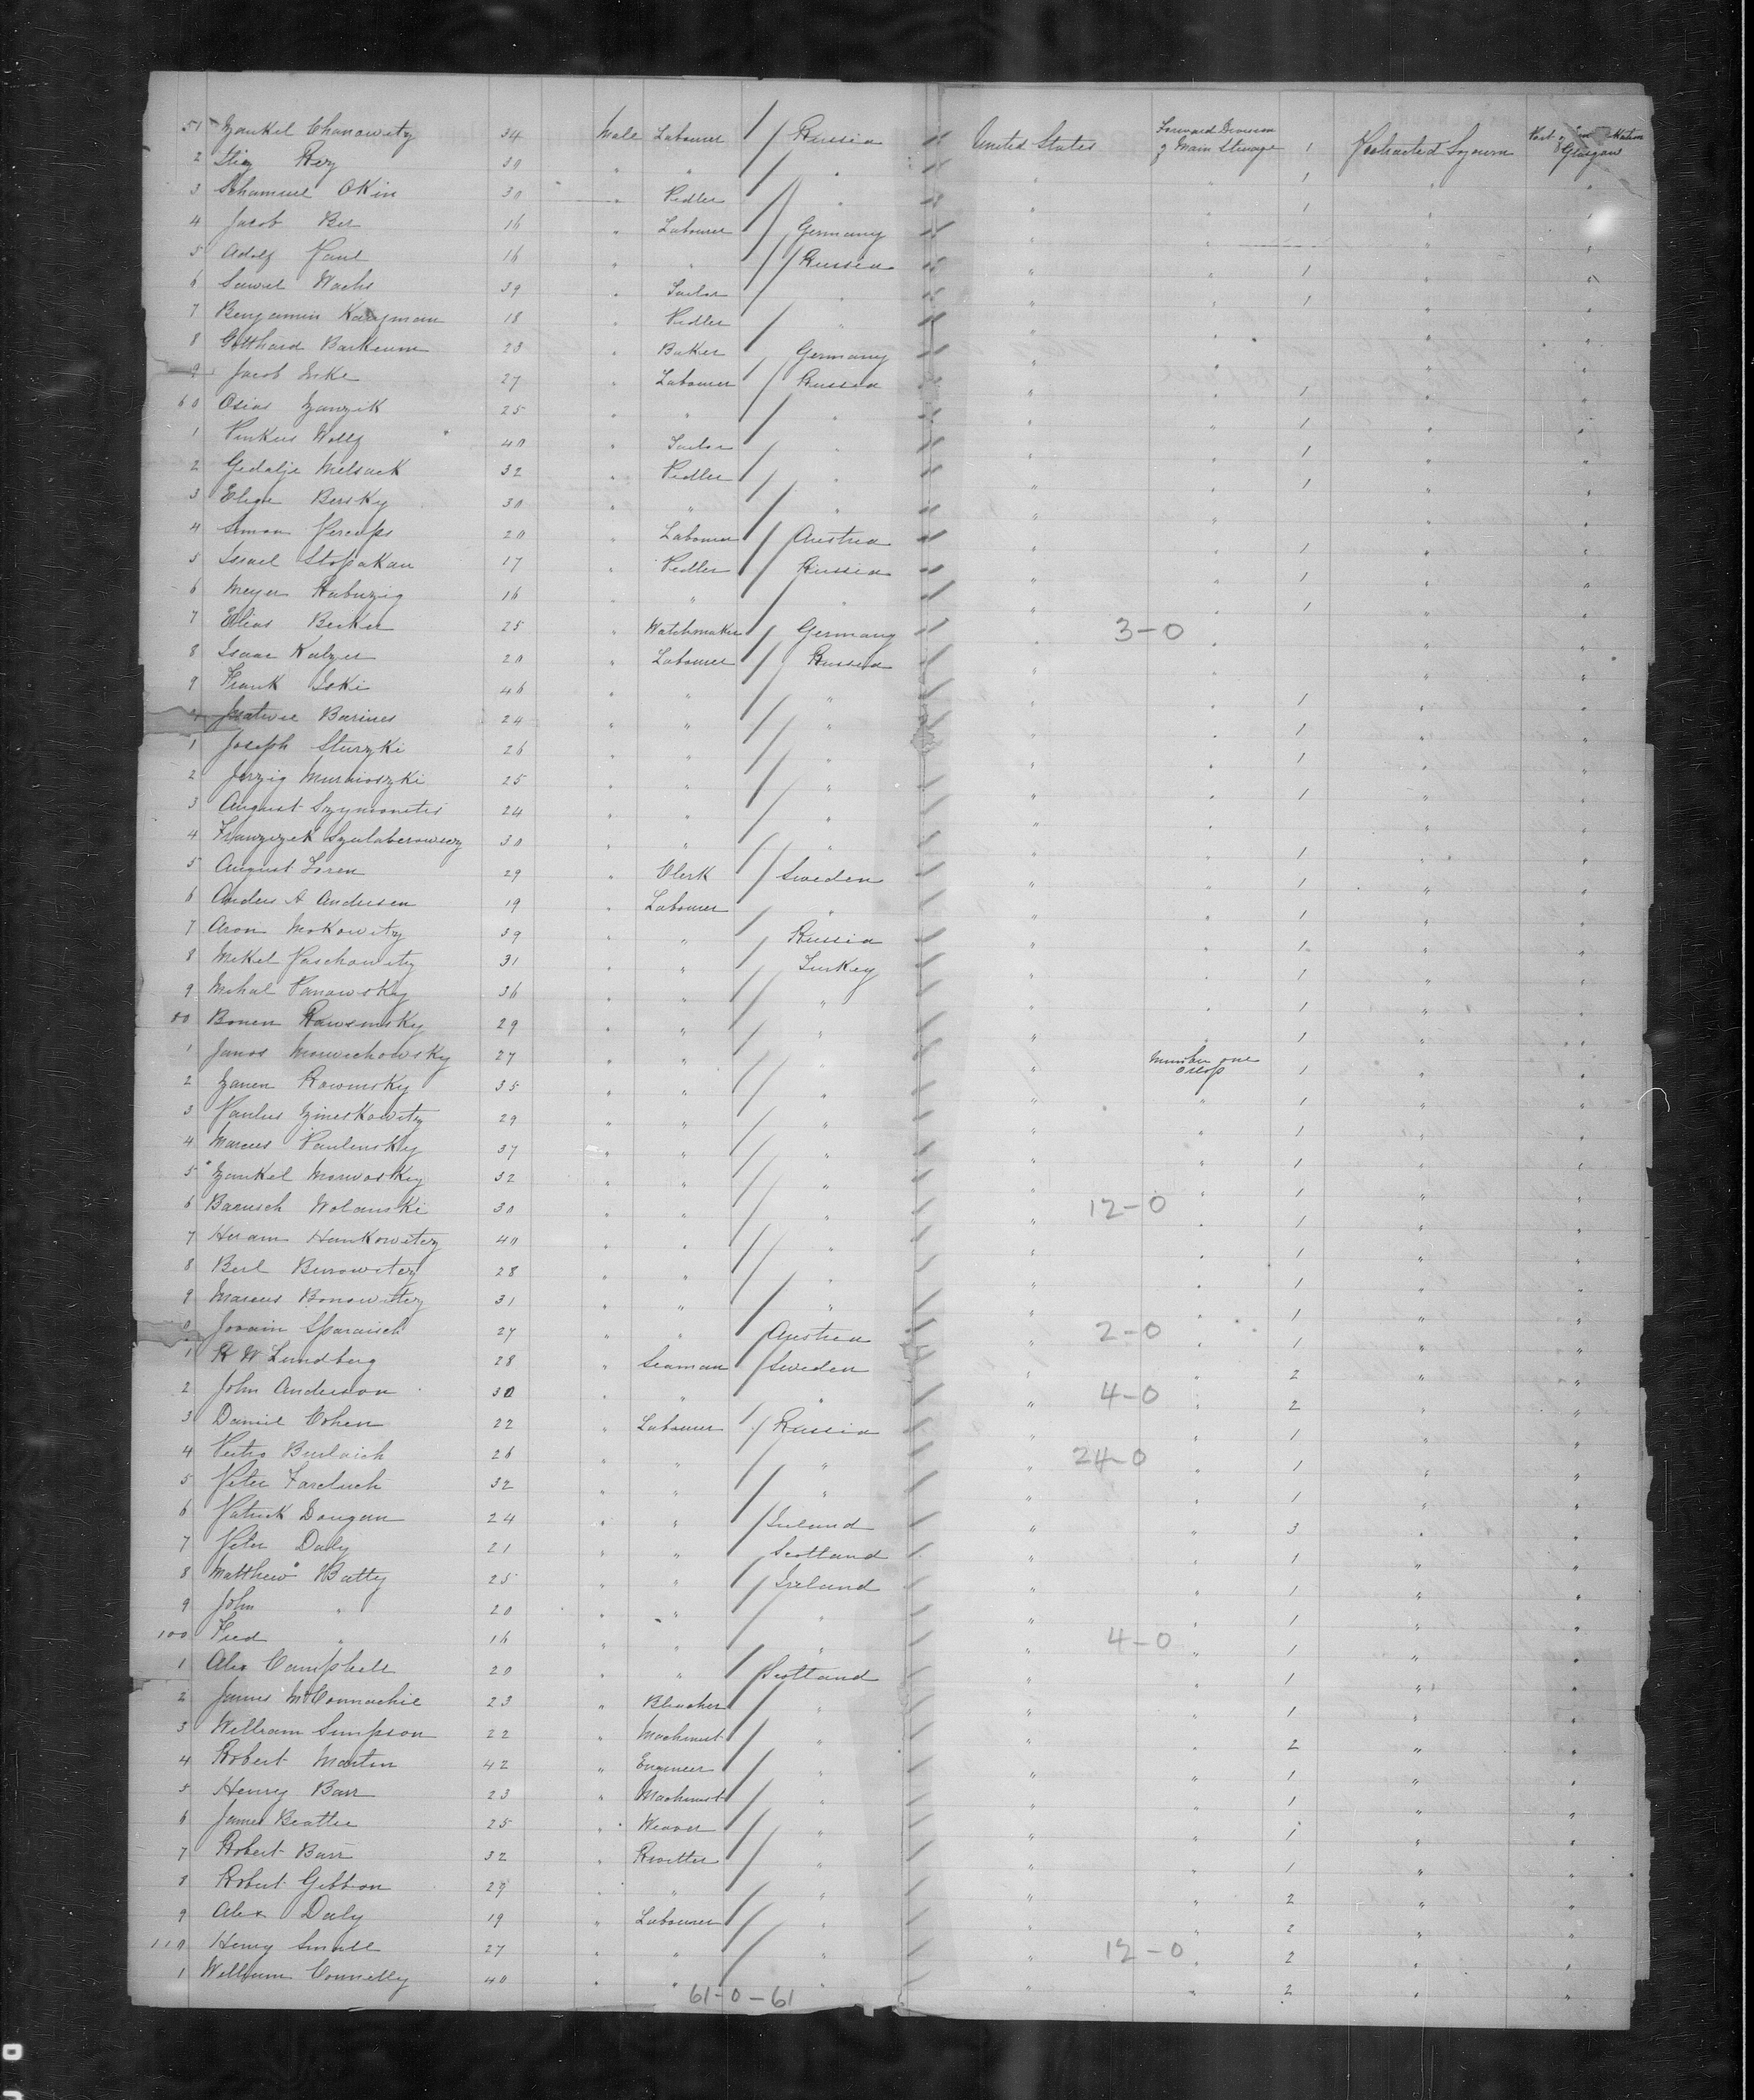 51 Zankel Chanowitz 34 Male Labourer / / Russia United States Forward Division of Main Steerage 1 Protracted Sojourn Port of Embarkation Glasgow
2 Stig Rez 30 " " / " " 1 " "
3 Schamuel Okin 30 " Pedler / / " " " 1 " "
4 Jacob Ber 16 " Labourer / / Germany " " " "
5 Adolf Paul 16 " " / / Russia " " 1 " "
6 Sawel Wachs 39 " Tailor / " " " 1 " "
7 Benjamin Kaufman 18 " Pedler / " " " "
8 Gotthard Barkeum 23 " Baker / Germany " " " "
9 Jacob Inke 27 " Labourer / Russia " " 1 " "
60 Osias Zanzik 25 " " / " " 1 " "
1 Pinkus Wolff 40 " Tailor / " " " 1 " "
2 Gedalje Melsack 32 " Pedler / " " " 1 " "
3 Elias Bersky 30 " " / " " " " "
4 Simon 20 " Labourer / / Austria " " 1 " "
5 Israel Stopakan 17 " Pedler / / Russia " " 1 " "
6 Meyer Rabuzig 16 " " / " " 1 " "
7 Elias Becker 25 " Watchmaker / / Germany " 3-0 " " "
8 Isaac Kalzer 20 " Labourer / / Russia " " "
9 Frank Iski 46 " " / " " " 1 " "
Barines 24 " " / " " " 1 " "
1 Joseph Sturzki 26 " " / " " " 1 " "
2 Jerzig Murnioszki 25 " " / " " " 1 " "
3 August Szymonetis 24 " " / " " " " "
4 Franzizek Szulaberowicz 30 " " / " " " 1 " "
5 August Loren 29 " Clerk / Sweden " " 1 " "
6 Anders A Andersen 19 " Labourer / " " " 1 " "
7 Aron Mokowitz 39 " " / Russia " " 1 " "
8 Mekel Paschowitz 31 " " / Turkey " " 1 " "
9 Mihal Panowsky 36 " " / " " " 1 " "
80 Bonen Rawsonsky 29 " " / " " " 1 " "
1 Janos Morwichowsky 27 " " / " " Number one Orlop 1 " "
2 Zanen Rowinsky 35 " " / " " " 1 " "
3 Paulus Zineskowitz 29 " " / " " " 1 " "
4 Marcus Paulinsky 37 " " / " " " 1 " "
5 Zankel Morwosky 32 " " / " " " 1 " "
6 Barusch Wolanski 30 " " / " " 12-0 " 1 " "
7 Hiram Hankowitz 40 " " / " " " 1 " "
8 Berl Burowitz 28 " " / " " " 1 " "
9 Marcus Bonowitz 31 " " / " " " 1 " "
0 Jovain Sparaisch 27 " " / Austria " 2-0 " 1 " "
1 R W Lundberg 28 " Seaman / Sweden " " 2 " "
2 John Anderson 30 " " / " " 4-0 " 2 " "
3 Daniel Cohen 22 " Labourer / / Russia " " 1 " "
4 Petro Burlaich 26 " " / " " 24-0 " 1 " "
5 Peter Farcluch 32 " " / " " " 1 " "
6 Patrick Dougan 24 " " / Ireland " " 3 " "
7 Peter Daly 21 " " Scotland " " 1 " "
8 Matthew Batty 25 " " / Ireland " " 1 " "
9 John " 20 " " / " " " 1 " "
100 Fred " 16 " " / " " 4-0 " 1 " "
1 Alex Campbell 20 " " / Scotland " " 1 " "
2 James McConnachie 23 " Bleacher / " " " 1 " "
3 William Simpson 22 " Machinist / " " " 2 " "
4 Robert Martin 42 " Engineer / " " " 1 " "
5 Henry Barr 23 " Machinist / " " " 1 " "
6 James Beattie 25 " Weaver / " " " 1 " "
7 Robert Barr 32 " Rivetter / " " " 1 " "
8 Robert Gibbon 29 " " / " " " 2 " "
9 Alex Daly 19 " Labourer / " " " 2 " "
110 Henry Small 27 " " / " " 12-0 " 2 " "
1 William Connelly 40 " " / " " " 2 " "
61-0-61